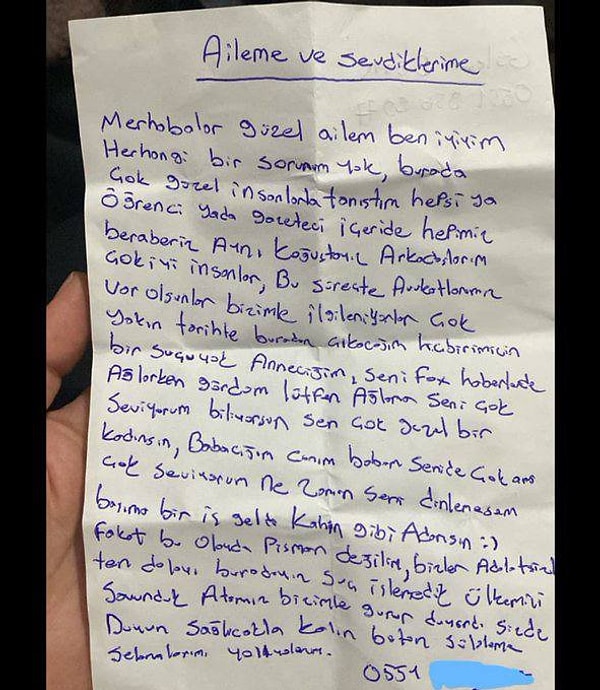 Aileme ve sevdiklerime
Merhabalar güzel ailem ben iyiyim
Herhangi bir sorunum yok, burada
Çok güzel insanlarla tanıştım hepsi ya
Öğrenci yada gazeteci içeride hepimiz
beraberiz Aynı Koğuştayız Arkadaşlarım
Çok iyi insanlar, Bu süreçte Avukatlarımız
Var olsunlar bizimle ilgileniyorlar Çok
yakın tarihte buradan çıkacağım hiçbirimizin
bir suçu yok Anneciğim, seni fox haberlerde
Ağlarken gördüm lütfen Ağlama Seni Çok
Seviyorum biliyorsun Sen Çok güzel bir
kadınsın, Babacığım canım babam Senide Çok ama
Çok Seviyorum Ne zaman Seni dinlemesem
başıma bir iş geldi Kahin gibi Adamsın :)
Fakat bu Olayda Pişman değilim, bizler Adaletsizlik
ten dolayı buradayız Suç işlemedik Ülkemizi
Savunduk Atamız bizimle gurur duyardı sizde
Duyun Sağlıcakla kalın bütün sülaleme
Selamlarımı yolluyorum.
0551